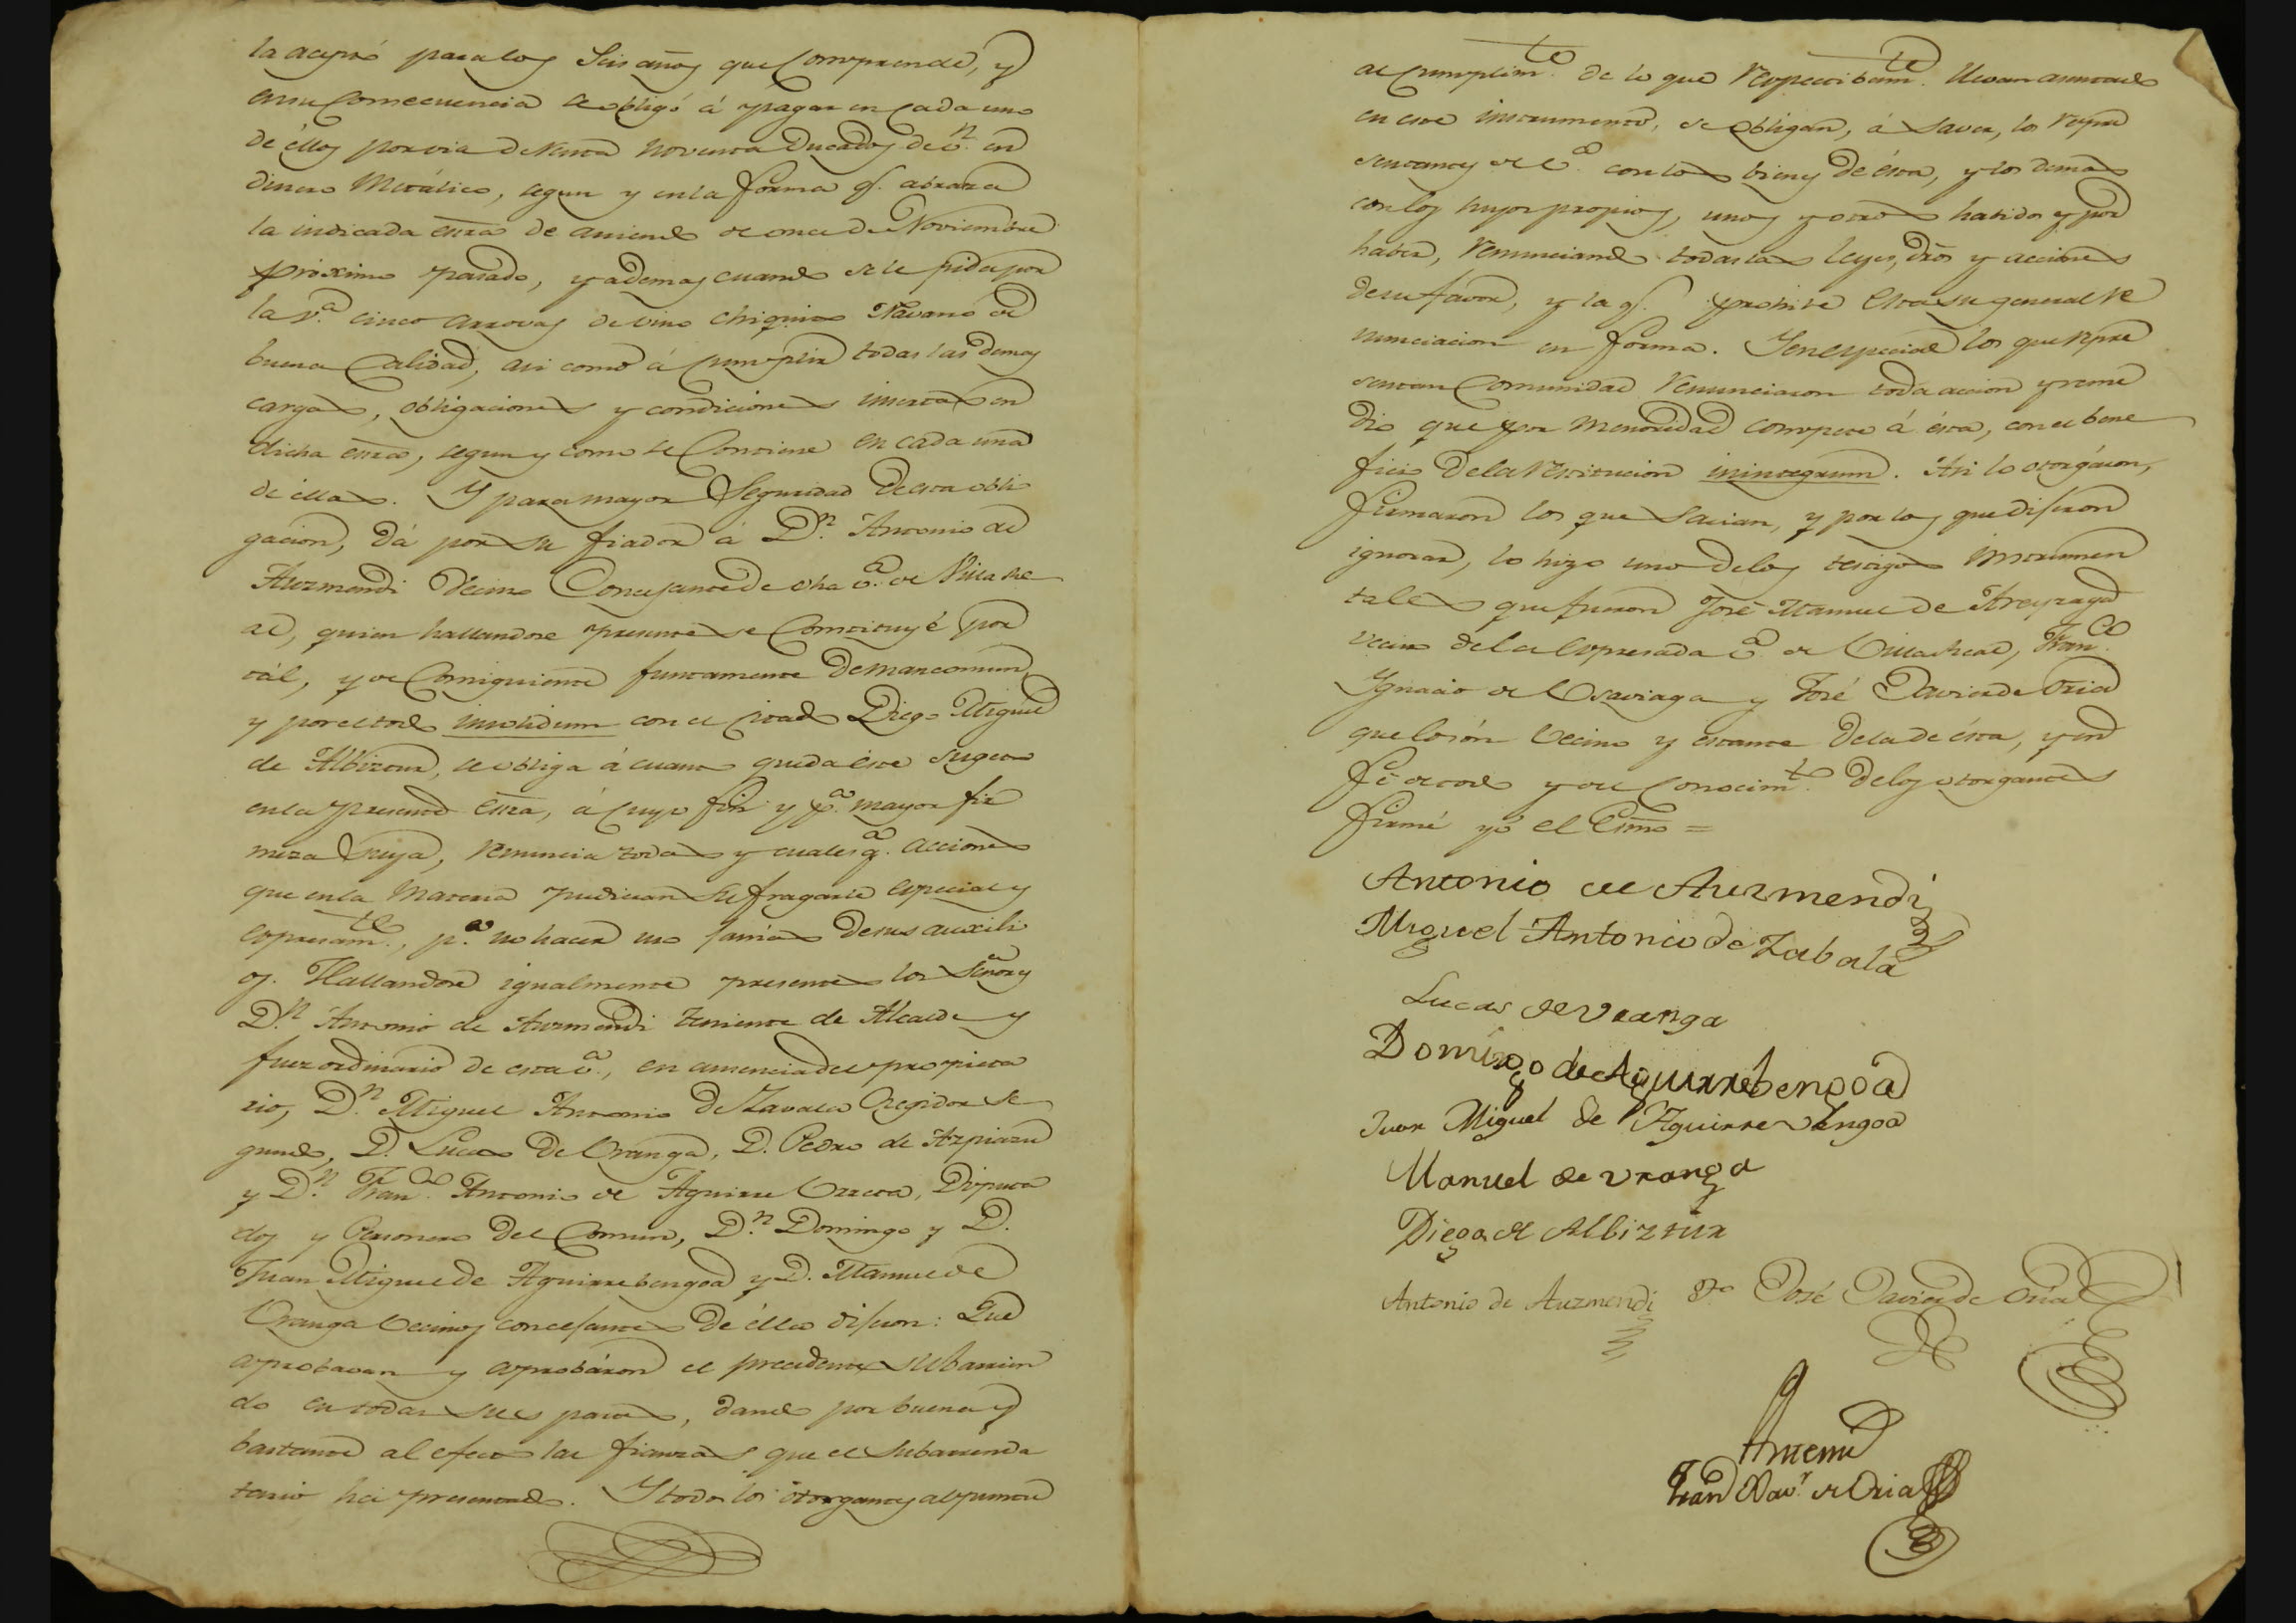 la aceptó para los Seis años que Comprende, y
en su Consecuencia se obligó á pagar en Cada uno
de éllos por via de Renta Noventa Ducados de v.n en
dinero Metálico, segun y en la forma q.e abraza
la indicada essra de arriendo de once de Noviembre
próximo pasado, y ademas cuando se le pida por
la v.a cinco arrovas de vino chiquito Navarro de
buena Calidad, asi como á Cumplir todas las demas
cargas, obligaciones y condiciones insertas en
dicha essra, segun y como se Contiene en cada una
de éllas. Y para mayor Seguridad de esta obli
gacion, dá por su fiador á D.n Antonio de
Auzmendi Vecino Concejante de dha v.a de Villa Re
al, quien hallandose presente se Constituyé por
tál, y de Consiguiente juntamente de mancomun
y por el todo insolidum con el citado Diego Miguel
de Albizturr, se obliga á cuanto queda este sugeto
en la presente essra, á cuyo fin y p.a mayor fir
meza Suya, renuncia todas y cualesq.a acciones
que en la Materia pudieran sufragarle especial y
expresam.te, p.a no hacer uso jamás de sus auxili
os. Hallandose igualmente presentes los Señores
D.n Antonio de Auzmendi teniente de Alcalde y
Juez ordinario de esta v.a, en ausencia del propieta
rio, D.n Miguel Antonio de Zavala Regidor Se
gundo, D. Lucas de Vranga, D. Pedro de Azpiazu
y D.n Fran.co Antonio de Aguirre Urreta, Diputa
dos y Personero del Comun, D.n Domingo y D.
Juan Miguel de Aguirrebengoa y D. Manuel de
Vranga Vecinos concejantes de élla dijeron: Que
aprobavan y aprobáron el precedente subarrien
do en todas sus partes, dando por buena y
bastante al efecto las fianzas que el Subarrenda
tario ha presentado. Y todos los otorgantes al puntual
al Cumplim.to de lo que respectibam.te llevan asentado
en este instrumento, se obligan, á Saver, los repre
sentantes de v.a con los bienes de ésta, y los demas
con los suyos propios, unos y otros habidos y por
haber, renunciando todas las leyes, dros y acciones
de su favor, y la q.e prohive esta su general re
nunciacion en forma. Y en especial los que repre
sentan Comunidad renunciaron toda accion y reme
dio que por menoridad compete á ésta, con el bene
ficio de la restitucion inintegrum. Asi lo otorgáron,
firmaron los que Savian, y por los que dijeron
ignorar, lo hizo uno de los testigos instrumen
tales que fueron José Manuel de Areyzaga
vecino de la expresada v.a de Villa Real, Fran.co
Ygnacio de Usaviaga y José Xavier de Oria
que lo són Vecino y estante de la de ésta, y en
fé de todo y de Conocim.to de los otorgantes
firmé yó el Essno =
Antonio de Auzmendi
Miguel Antonio de Zabala
Lucas de Vranga
Domingo de Aguirrebengoa
Juan Miguel de Aguirrebengoa
Manuel de Vranga
Diego de Albiztur
Antonio de Auzmendi
t.go José Xavier de Oria
Antemi
Fran Xav.r de Oria